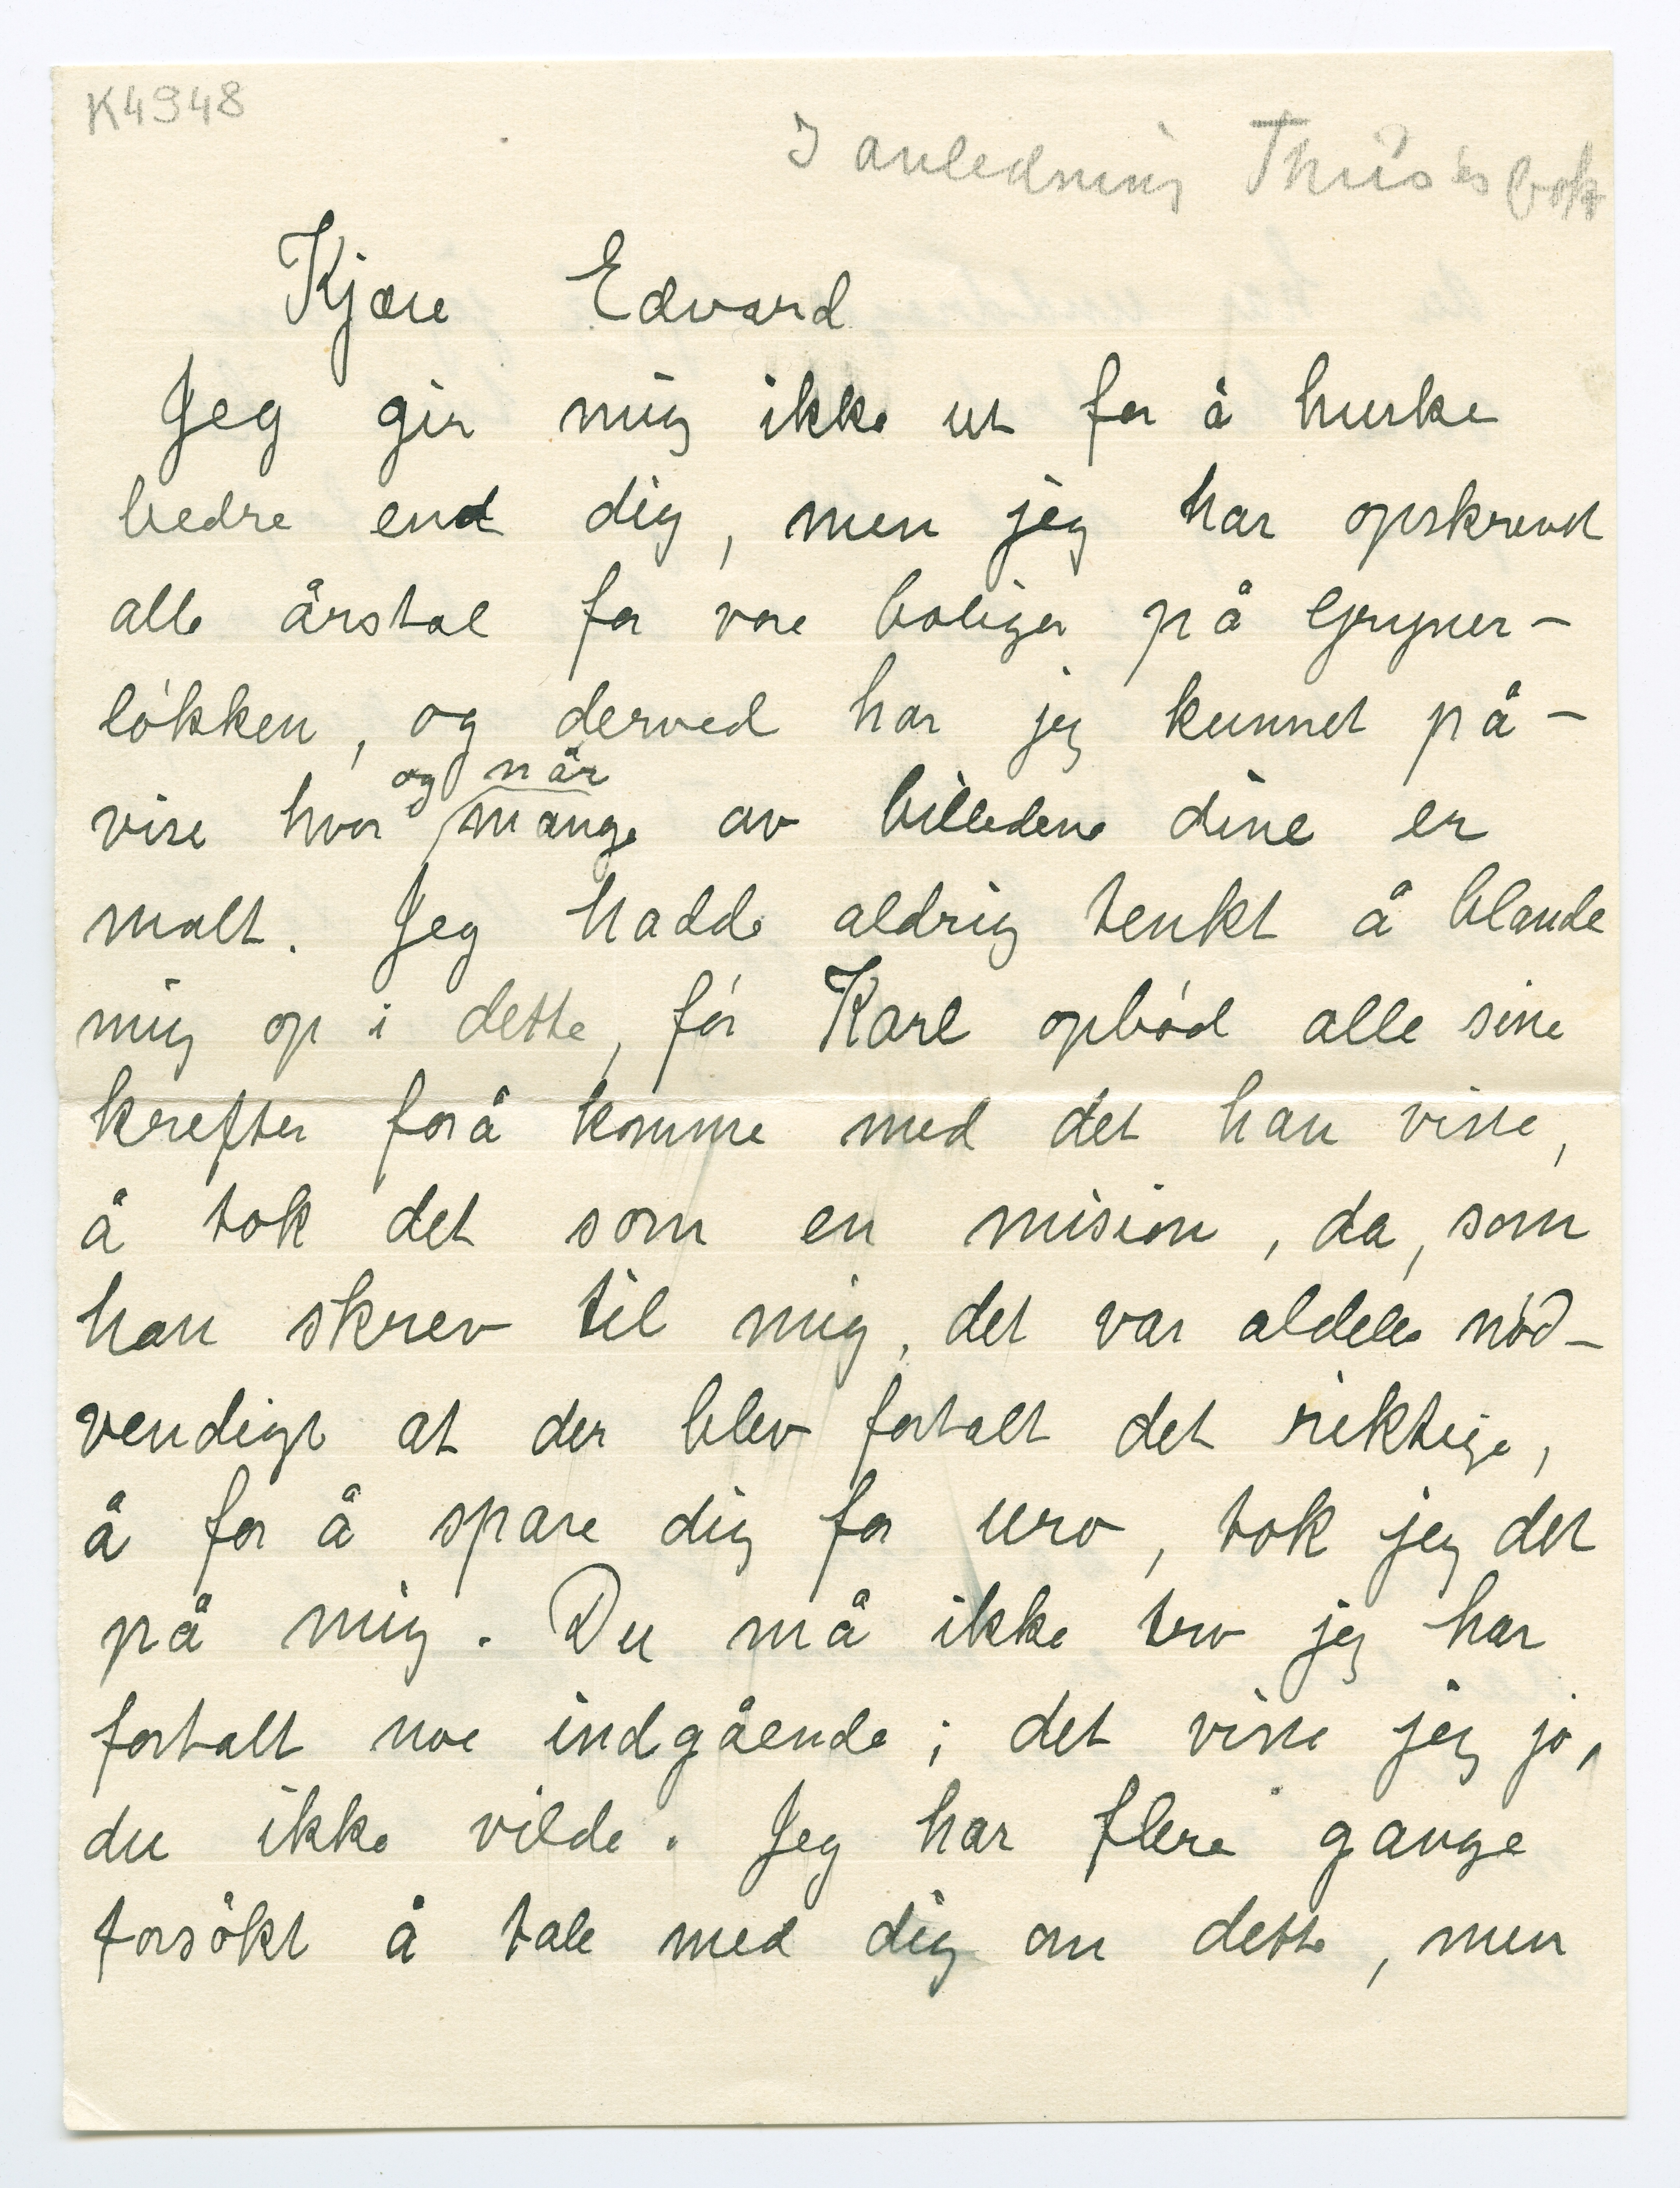 K4948
I anledning Thiis's bok
Kjære Edvard
Jeg gir mig ikke ut for å huske
bedre end dig, men jeg har opskrevet
alle årstal for vore boliger på Gryner-
løkken, og derved har jeg kunnet på-
og når
vise hvor mange av billedene dine er
malt. Jeg hadde aldrig tenkt å blande
mig op i dette, før Karl opbød alle sine
krefter forå komme med det han viste,
å tok det som en mision, da, som
han skrev til mig, det var aldeles nød-
vendigt at der blev fortalt det riktige,
å for å spare dig for uro, tok jeg det
på mig. Du må ikke tro jeg har
fortalt noe indgående; det viste jeg jo,
du ikke vilde. Jeg har flere gange
forsøkt å tale med dig om dette, men